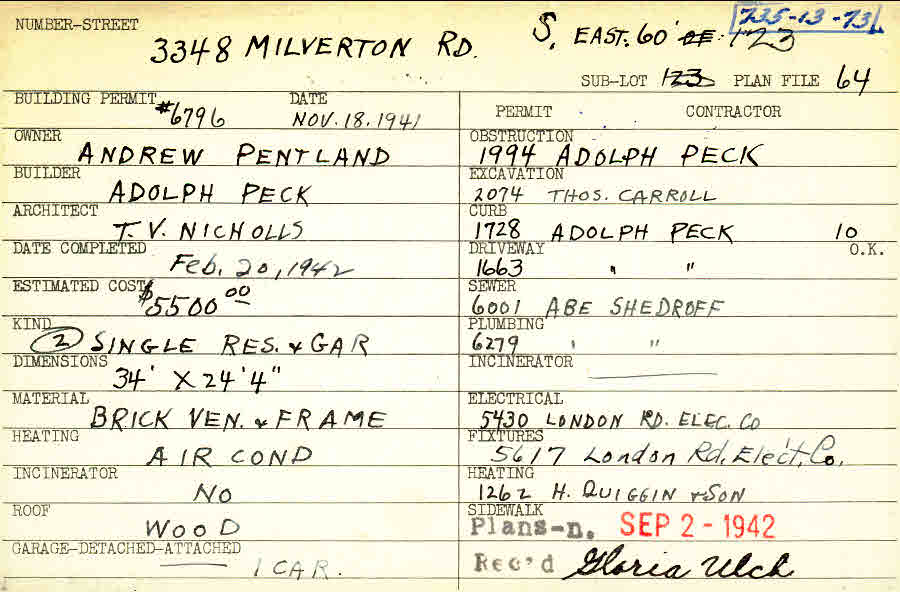 735-13-73
NUMBER-STREET
3348 MILVERTON RD. S. EAST. 60' OF: 123
SUB-LOT 123 PLAN FILE 64
BUILDING PERMIT #6796 DATE NOV. 18. 1941
PERMIT CONTRACTOR
OWNER
ANDREW PENTLAND
OBSTRUCTION
1994 ADOLPH PECK
BUILDER
ADOLPH PECK
EXCAVATION
2074 THOS. CARROLL
ARCHITECT
T. V. NICHOLLS
CURB
1728 ADOLPH PECK 10
DATE COMPLETED
Feb. 20, 1942
DRIVEWAY O.K.
1663 " "
ESTIMATED COST
$5500 00
SEWER
6001 ABE SHEDROFF
KIND
(2) SINGLE RES. & GAR
PLUMBING
6279 ' "
DIMENSIONS
34' X 24' 4"
INCINERATOR
MATERIAL
BRICK VEN. & FRAME
ELECTRICAL
5430 LONDON RD. ELEC. CO
HEATING
AIR COND
FIXTURES
5617 London Rd. Elect. Co.
INCINERATOR
NO
HEATING
1262 H. QUIGGIN & SON
ROOF
WOOD
SIDEWALK
Plans-n. SEP 2 - 1942
GARAGE-DETACHED-ATTACHED
1 CAR.
Rec'd Gloria Ulch